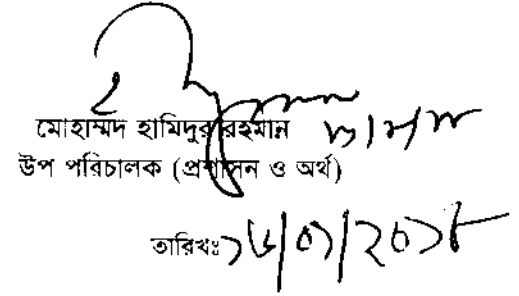 মোহাম্মদ হামিদুর রহমান
উপ পরিচালক (প্রশাসন ও অর্থ)
তারিখঃ ১৬/০১/২০১৮